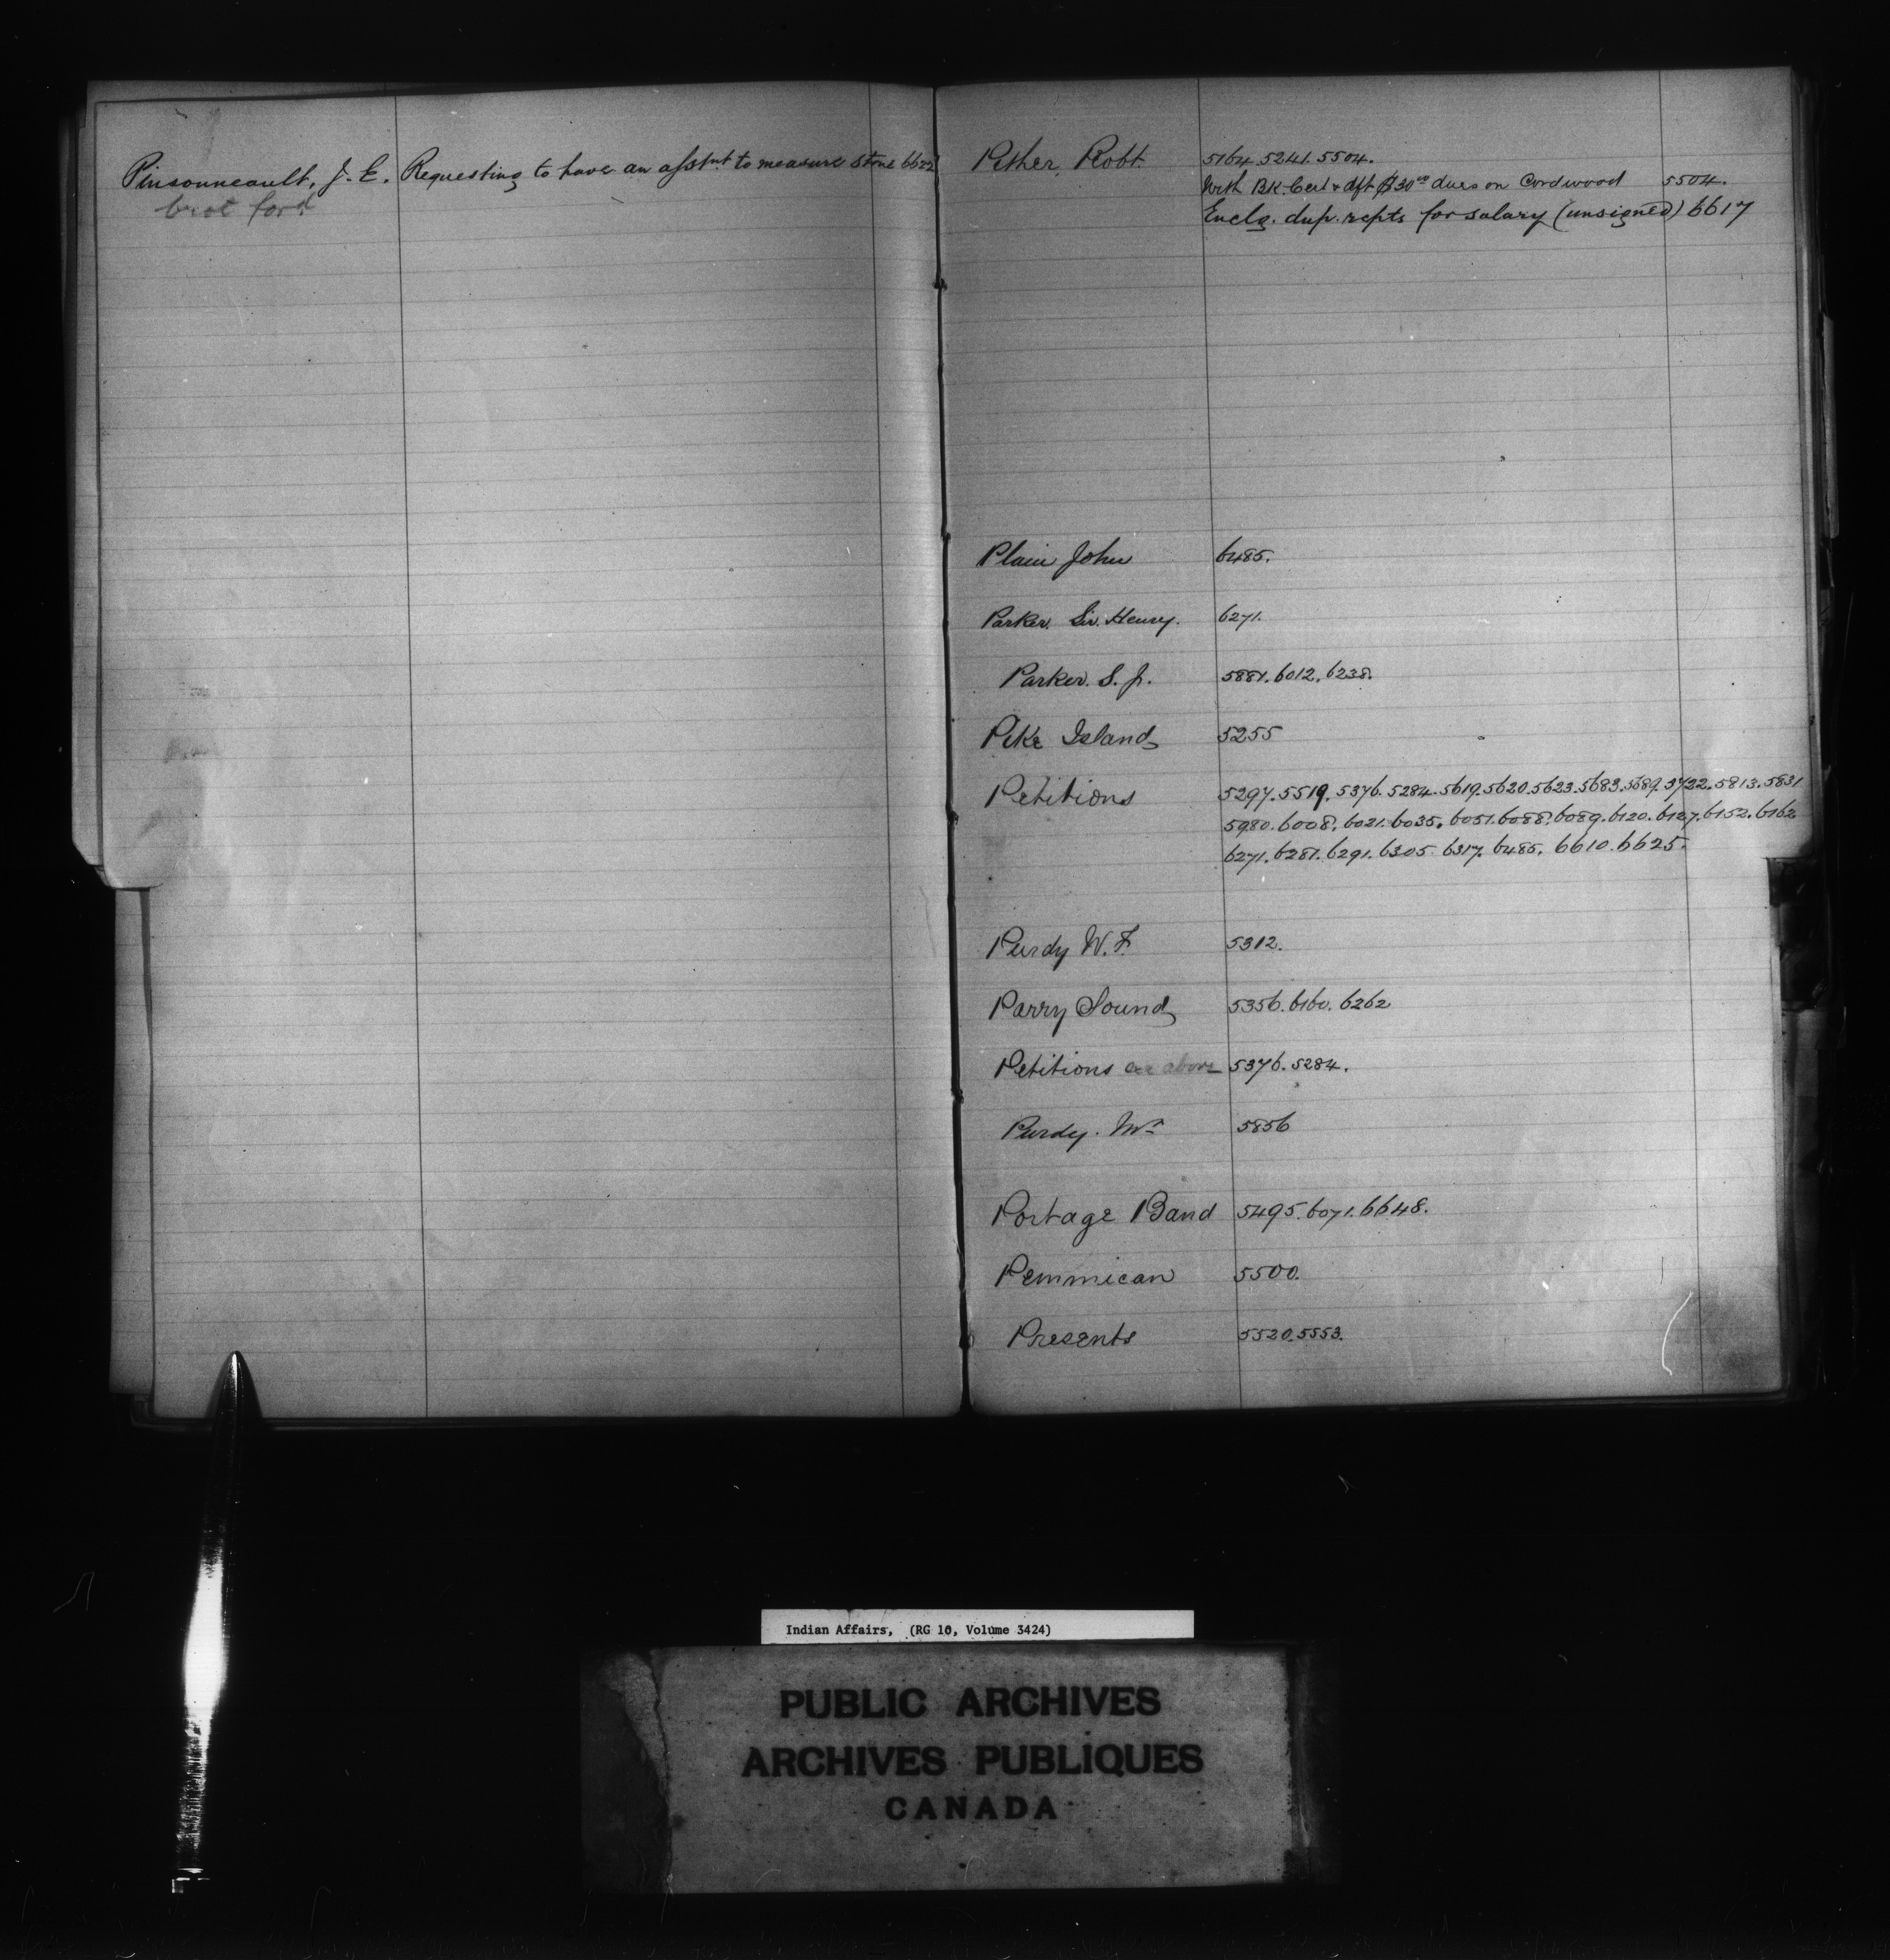 Pinsonneault, J. E. Requesting to have an assnt. to measure stone 6622
brot ford
Pither, Robt. 5164. 5241. 5504.
With BK. Cert & dft $30.00 dues on Cordwood 5504.
Enclg. dup. rcpts for salary (unsigned) 6617
Plain John 6485.
Parker. Sir. Henry. 6271.
Parker. S. J. 5881. 6012. 6238.
Pike Island 5255
Petitions 5297. 5519. 5376. 5284. 5619. 5620. 5623. 5683. 5689. 5722. 5813. 5831
5980. 6008. 6021. 6035. 6051. 6088. 6089. 6120. 6127. 6152. 6162
6271. 6281. 6291. 6305. 6317. 6485. 6610. 6625.
Purdy W. F. 5312.
Parry Sound 5356. 6160. 6262
Petitions see above 5376. 5284.
Purdy. Mr. 5856
Portage Band 5495. 6071. 6648.
Pemmican 5500.
Presents 5520. 5553.
Indian Affairs, (RG 10, Volume 3424)
PUBLIC ARCHIVES
ARCHIVES PUBLIQUES
CANADA